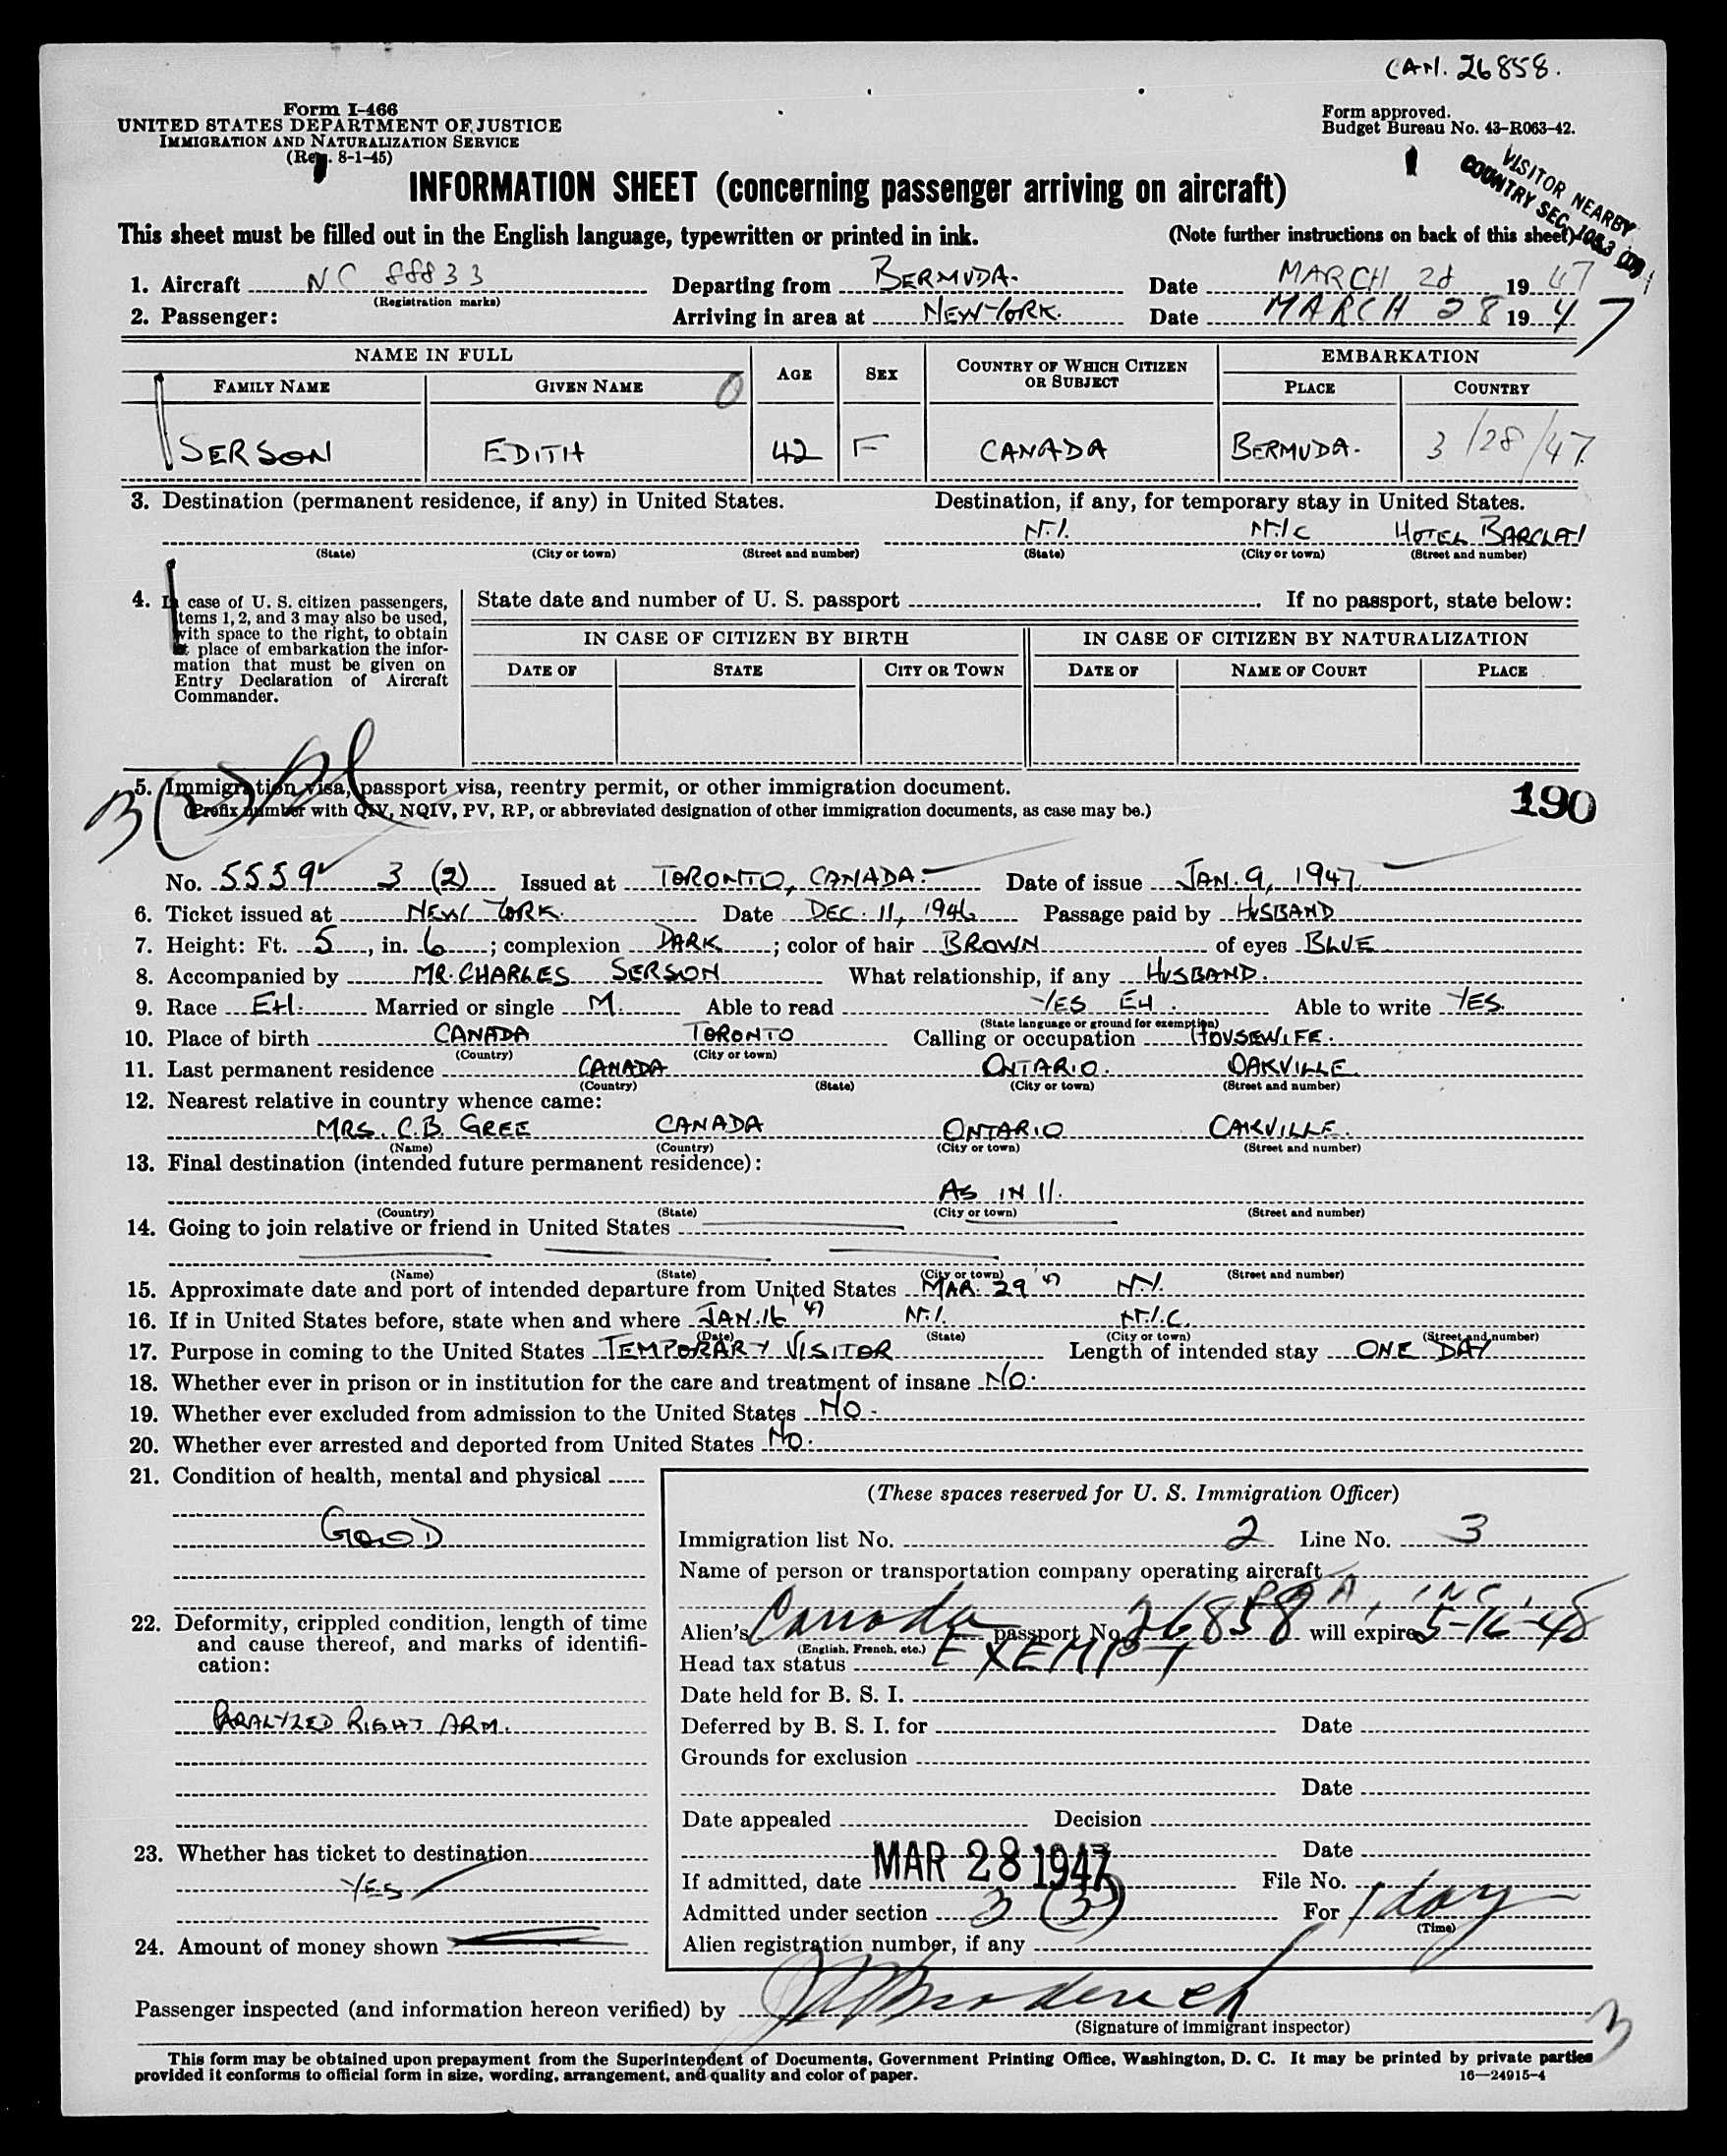 CAN. 26858.
Form I-466
UNITED STATES DEPARTMENT OF JUSTICE
IMMIGRATION AND NATURALIZATION SERVICE
(Rev. 8-1-45)
Form approved.
Budget Bureau No. 43-R063-42.
VISITOR NEARBY
COUNTRY SEC.
INFORMATION SHEET (concerning passenger arriving on aircraft)
This sheet must be filled out in the English language, typewritten or printed in ink. (Note further instructions on back of this sheet)
1. Aircraft NC 88833 Departing from BERMUDA. Date MARCH 28 1947
(Registration marks)
2. Passenger: Arriving in area at NEW YORK. Date MARCH 28 1947
NAME IN FULL AGE SEX COUNTRY OF WHICH CITIZEN OR SUBJECT EMBARKATION
FAMILY NAME GIVEN NAME PLACE COUNTRY
SERSON EDITH 42 F CANADA BERMUDA. 3/28/47
3. Destination (permanent residence, if any) in United States. Destination, if any, for temporary stay in United States.
N.Y. N.Y.C HOTEL BARCLAY
(State) (City or town) (Street and number) (State) (City or town) (Street and number)
4. In case of U. S. citizen passengers,
items 1, 2, and 3 may also be used,
with space to the right, to obtain
at place of embarkation the infor-
mation that must be given on
Entry Declaration of Aircraft
Commander.
State date and number of U. S. passport If no passport, state below:
IN CASE OF CITIZEN BY BIRTH IN CASE OF CITIZEN BY NATURALIZATION
DATE OF STATE CITY OR TOWN DATE OF NAME OF COURT PLACE
5. Immigration visa, passport visa, reentry permit, or other immigration document.
(Prefix number with QIV, NQIV, PV, RP, or abbreviated designation of other immigration documents, as case may be.)
190
No. 5559 3 (2) Issued at TORONTO, CANADA. Date of issue JAN. 9, 1947
6. Ticket issued at NEW YORK. Date DEC. 11, 1946 Passage paid by HUSBAND
7. Height: Ft. 5, in. 6; complexion DARK; color of hair BROWN of eyes BLUE
8. Accompanied by MR. CHARLES SERSON What relationship, if any HUSBAND.
9. Race EH. Married or single M. Able to read YES EH. Able to write YES.
(State language or ground for exemption)
10. Place of birth CANADA TORONTO Calling or occupation HOUSEWIFE.
(Country) (City or town)
11. Last permanent residence CANADA ONTARIO. OAKVILLE
(Country) (State) (City or town) (Street and number)
12. Nearest relative in country whence came:
MRS. C.B. GREE CANADA ONTARIO OAKVILLE.
(Name) (Country) (City or town) (Street and number)
13. Final destination (intended future permanent residence):
AS IN 11.
(Country) (State) (City or town) (Street and number)
14. Going to join relative or friend in United States
(Name) (State) (City or town) (Street and number)
15. Approximate date and port of intended departure from United States MAR. 29 '47 N.Y.
16. If in United States before, state when and where JAN. 16 '47 N.Y. N.Y.C.
(Date) (State) (City or town) (Street and number)
17. Purpose in coming to the United States TEMPORARY VISITOR Length of intended stay ONE DAY
18. Whether ever in prison or in institution for the care and treatment of insane NO.
19. Whether ever excluded from admission to the United States NO.
20. Whether ever arrested and deported from United States NO.
21. Condition of health, mental and physical
GOOD
22. Deformity, crippled condition, length of time
and cause thereof, and marks of identifi-
cation:
PARALYZED RIGHT ARM.
23. Whether has ticket to destination
YES
24. Amount of money shown
(These spaces reserved for U. S. Immigration Officer)
Immigration list No. 2 Line No. 3
Name of person or transportation company operating aircraft
INC.
Alien's Canada passport No. 26858 will expire 5-16-48
(English, French, etc.)
Head tax status EXEMPT
Date held for B. S. I.
Deferred by B. S. I. for Date
Grounds for exclusion
Date
Date appealed Decision
Date
If admitted, date MAR 28 1947 File No.
Admitted under section 3 (3) For 1 day
(Time)
Alien registration number, if any
Passenger inspected (and information hereon verified) by
(Signature of immigrant inspector)
3
This form may be obtained upon prepayment from the Superintendent of Documents, Government Printing Office, Washington, D. C. It may be printed by private parties
provided it conforms to official form in size, wording, arrangement, and quality and color of paper. 16—24915-4